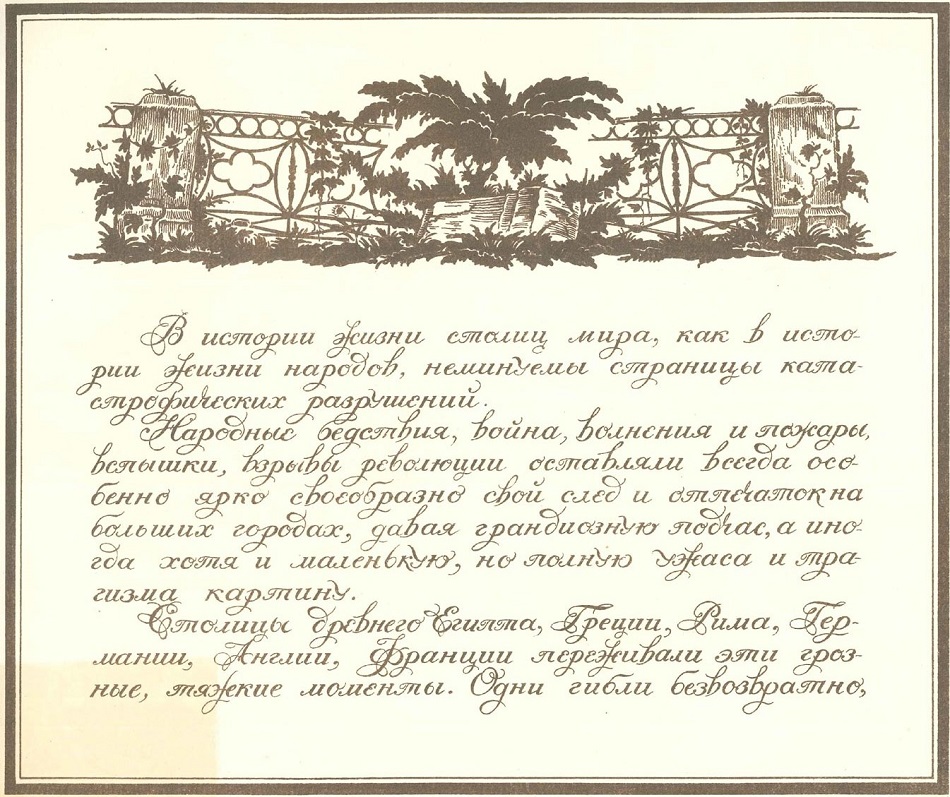 В истории жизни столиц мира, как в исто-
рии жизни народов, неминуемы страницы ката-
строфических разрушений.
Народные бедствия, война, волнения и пожары,
вспышки, взрывы революции оставляли всегда осо-
бенно ярко своеобразно свой след и отпечаток на
больших городах, давая грандиозную подчас, а ино-
гда хотя и маленькую, но полную ужаса и тра-
гизма картину.
Столицы древнего Египта, Греции, Рима, Гер-
мании, Англии, Франции переживали эти гроз-
ные, тяжкие моменты. Одни гибли безвозвратно,